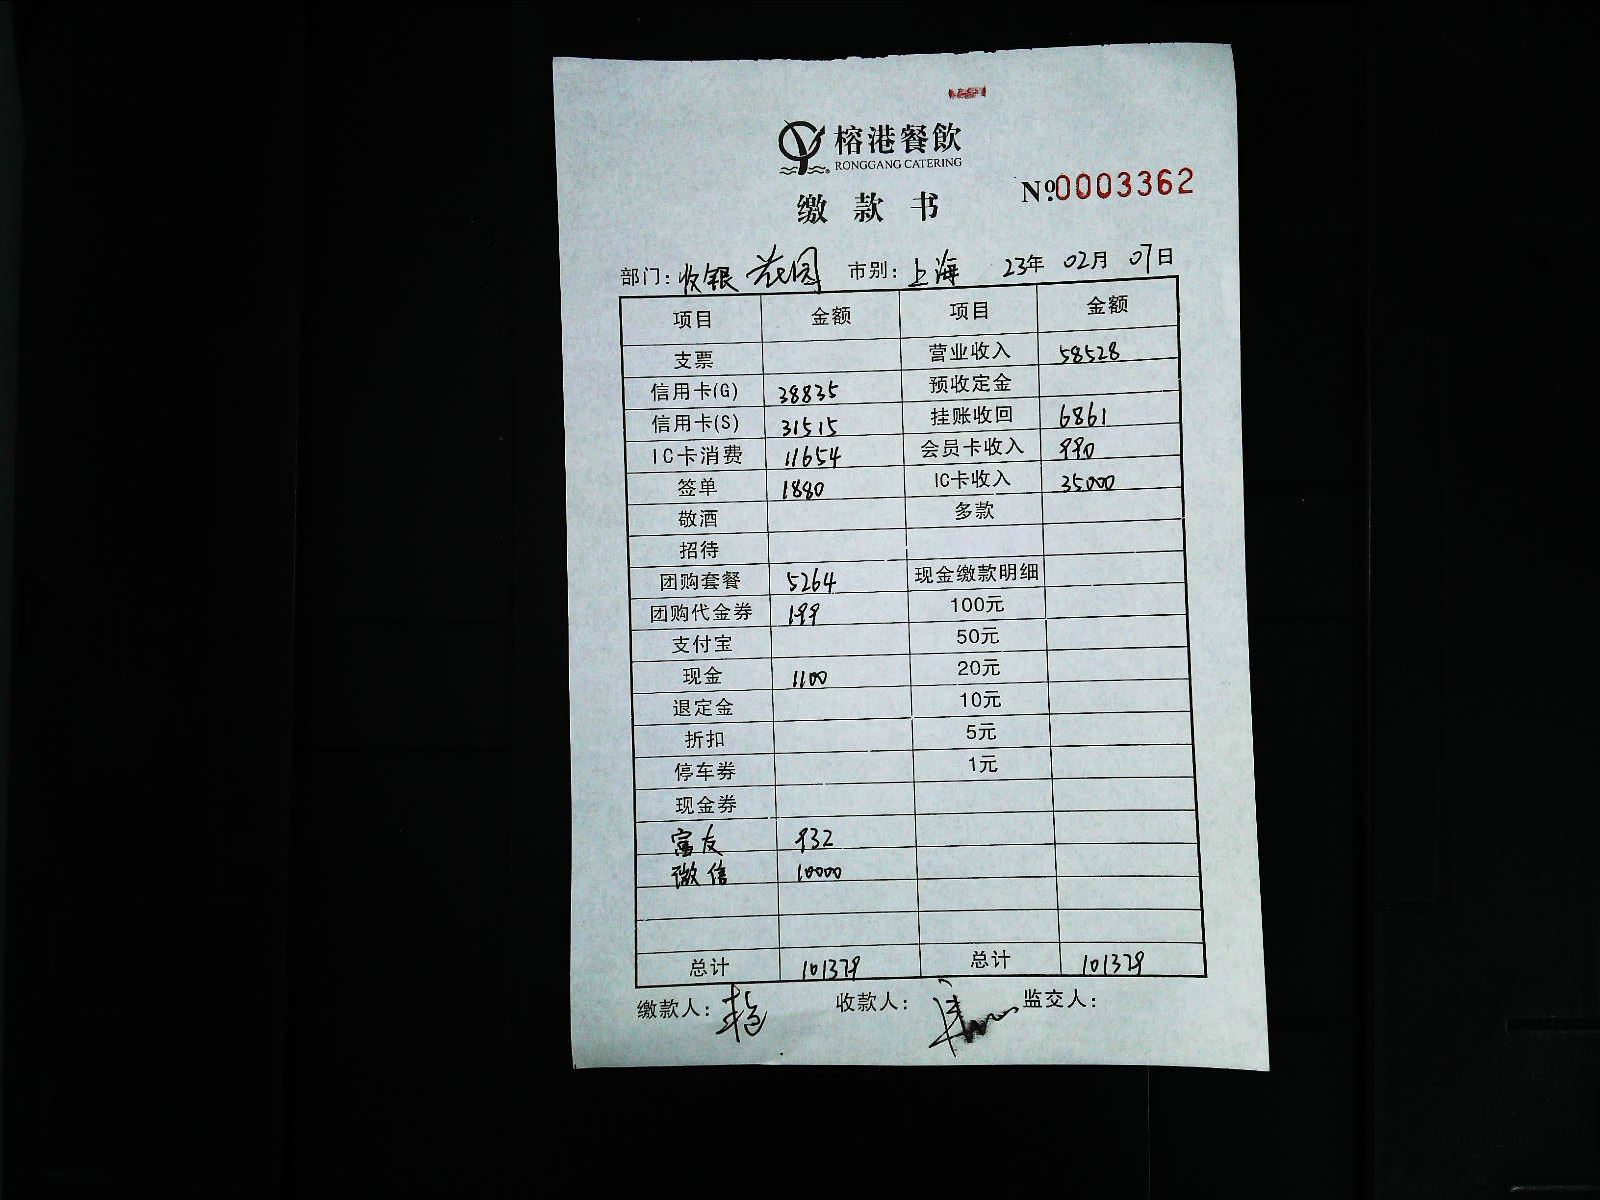 榕港餐飲
RONGGANG CATERING
缴款书 №0003362
部门：收银 花园 市别：上海 23年 02月 07日
项目 金额 项目 金额
支票 营业收入 58528
信用卡(G) 38835 预收定金
信用卡(S) 31515 挂账收回 6861
IC卡消费 11654 会员卡收入 990
签单 1880 IC卡收入 35000
敬酒 多款
招待
团购套餐 5264 现金缴款明细
团购代金券 199 100元
支付宝 50元
现金 1100 20元
退定金 10元
折扣 5元
停车券 1元
现金券
富友 932
微信 10000
总计 101379 总计 101379
缴款人： 收款人： 监交人：